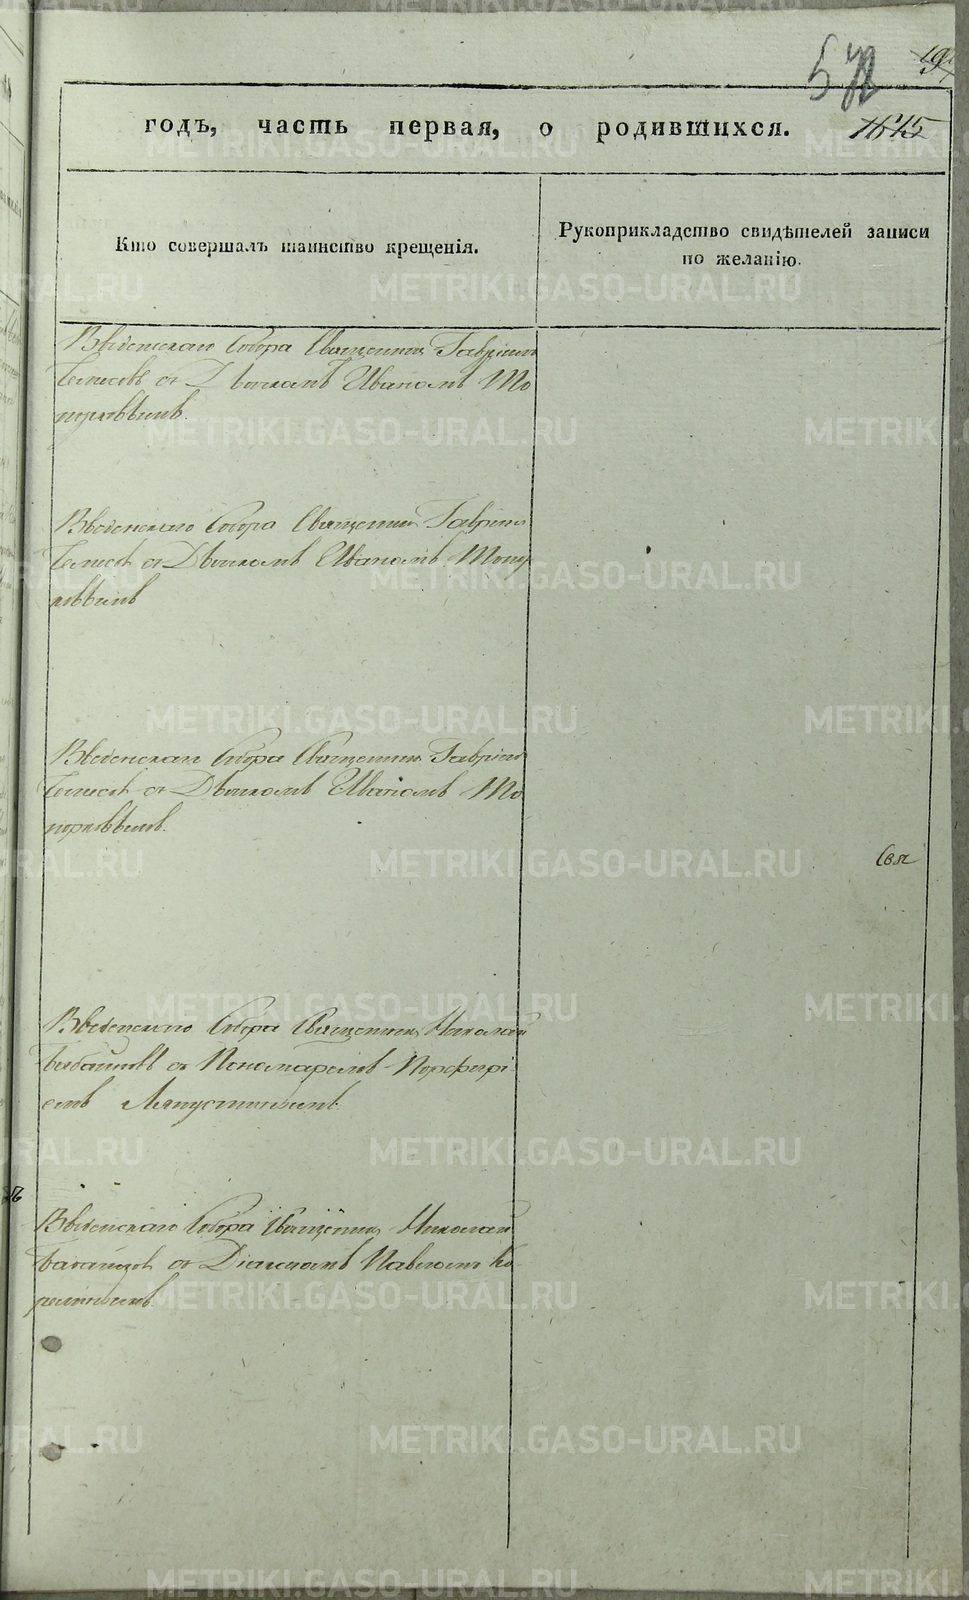 578
годъ, часть первая, о родившихся.
Кто совершалъ таинство крещенія.
Рукоприкладство свидѣтелей записи
по желанію.
Введенскаго Собора Священник Гавріил
съ Дьячкомъ Иваномъ То
порковымъ.
Введенскаго Собора Священник Гавріил
съ Дьячкомъ Иваномъ Топор
ковымъ
Введенскаго Собора Священник Гавріил
съ Дьячкомъ Иваномъ То
порковымъ.
Свя
Введенскаго Собора Священник Николай
съ Пономаремъ Порфирі
емъ Ляпустинымъ
Введенскаго Собора Священник Николай
съ Діакономъ Павломъ Ко
METRIKI.GASO-URAL.RU